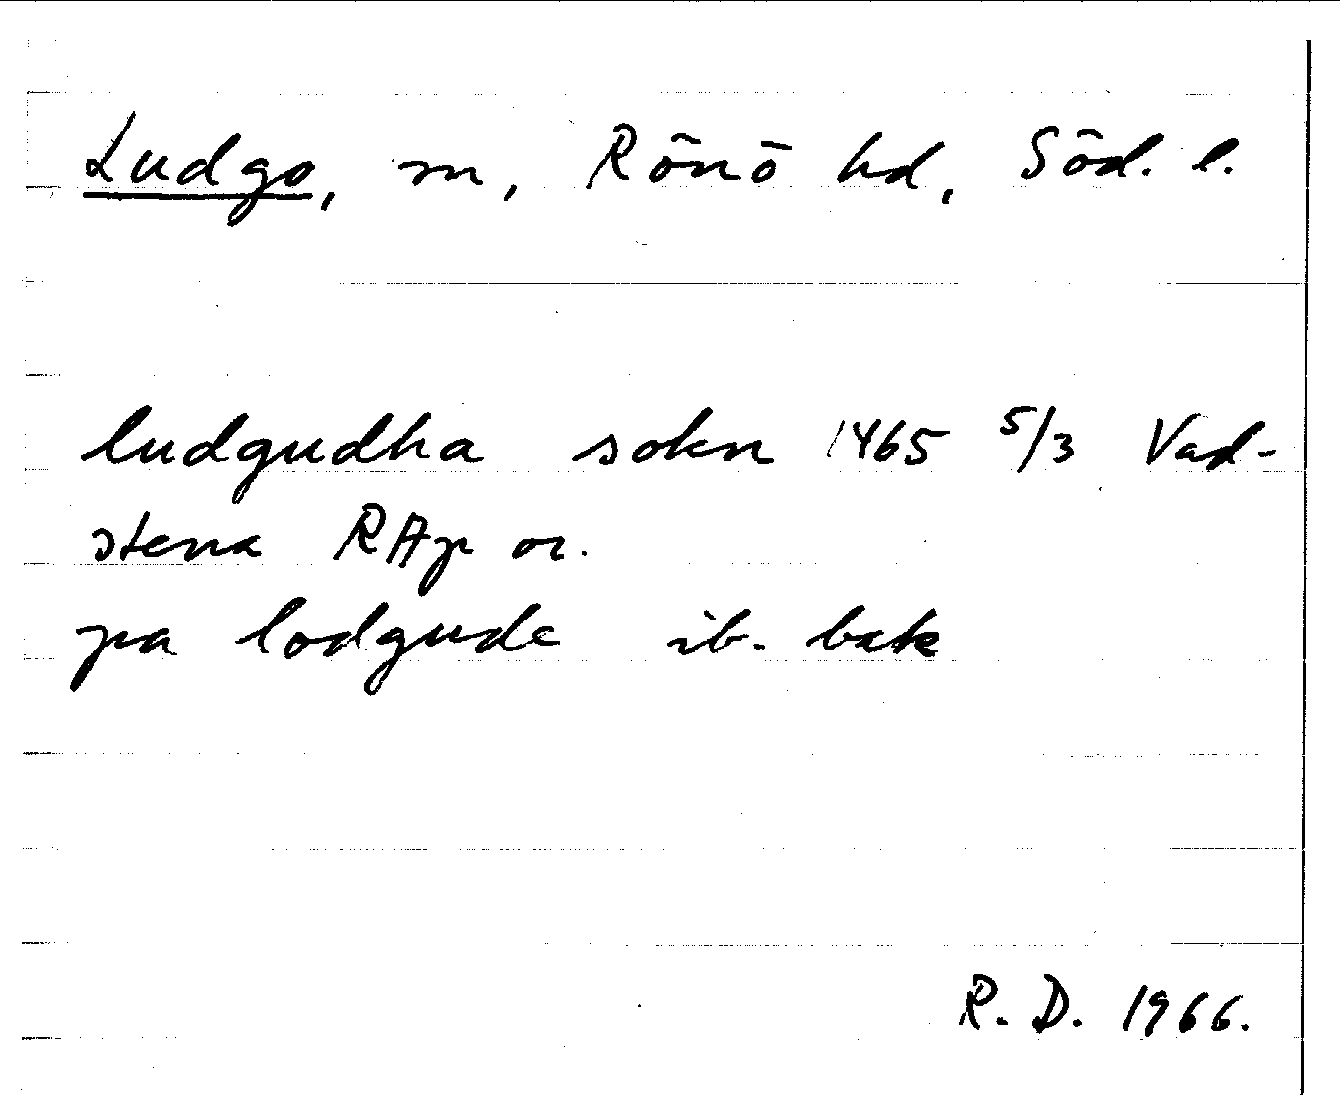 Ludgo, sn, Rönö hd, Söd. l.
ludgudha sokn 1465 5/3 Vad-
stena RAp or.
pa lodgude ib. bak
R. D. 1966.